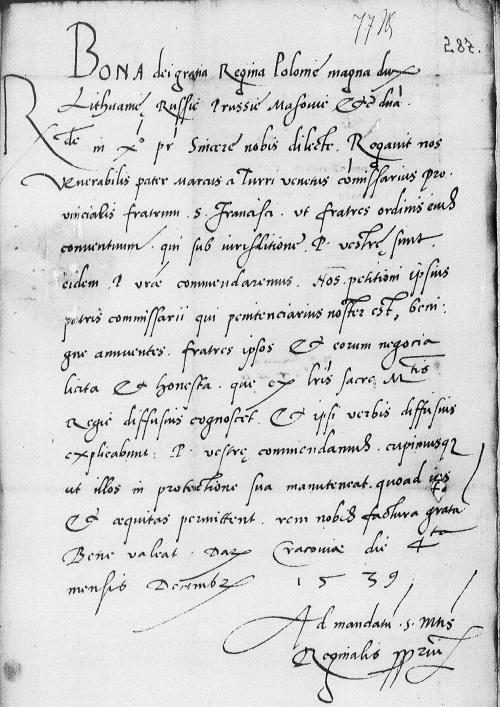 287.
BONA dei gratia Regina Polonię magna dux
Lithuanię Russię Prussię Masovię &c dnã.
Rde in Xº pr̃ Sincere nobis dilecte. Rogavit nos
venerabilis pater Marcus a Turri venetus cõmissarius pro
vincialis fratrum .S. Francisci. ut fratres ordinis eiusd
conventium. qui sub iurisditione .P. vestrę sunt.
eidem .P. vrãe commendaremus. Nos petitioni ipsius
patris commissarii qui penitenciarius noster est, beni
gne annuentes. fratres ipsos & eorum negocia
licita & honesta. que ex lris sacrę Mtis
Regię diffusius cognoscet. & ipsi verbis diffusius
explicabunt: P. vestrę commendamus. cupimusq
ut illos in protectione sua manuteneat. quoad ius
& æquitas permittent. rem nobis factura gratã
Bene valeat. Dat Cracoviæ die 4ta
mensis Decembr 1539.
Ad mandatũ .S. Mtis
Reginalis ppriũ